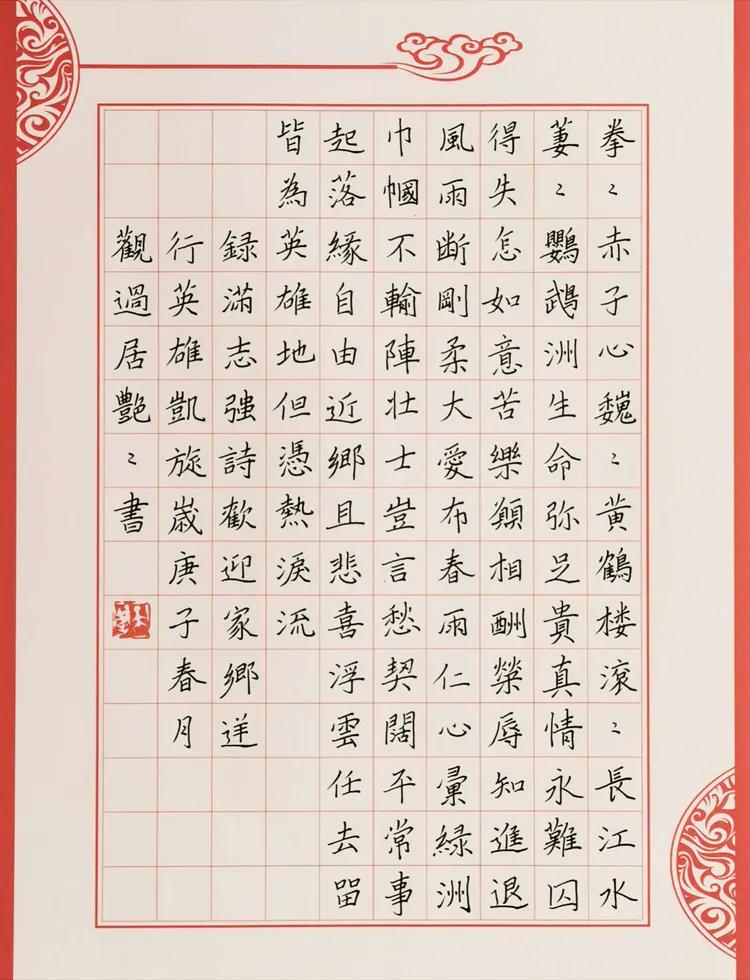 拳〻赤子心巍〻黄鶴楼滾〻長江水
萋〻鸚鵡洲生命弥足貴真情永難囚
得失怎如意苦樂願相酬榮辱知進退
風雨斷剛柔大愛布春雨仁心彙緑洲
巾幗不輸陣壮士豈言愁契闊平常事
起落緣自由近鄉且悲喜浮雲任去留
皆為英雄地但憑熱淚流
録滿志強詩歡迎家鄉送
行英雄凱旋歲庚子春月
觀過居艷〻書